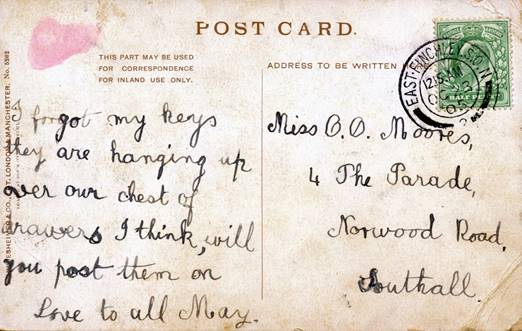 POST CARD.
THIS PART MAY BE USED
FOR CORRESPONDENCE
FOR INLAND USE ONLY.
I forgot my keys
they are hanging up
over our chest of
drawers I think, will
you post them on
Love to all May.
ADDRESS TO BE WRITTEN
Miss O.O. Moores,
4 The Parade,
Norwood Road,
Southall.
EAST-FINCHLEY
12.15 AM
LONDON, MANCHESTER. No.